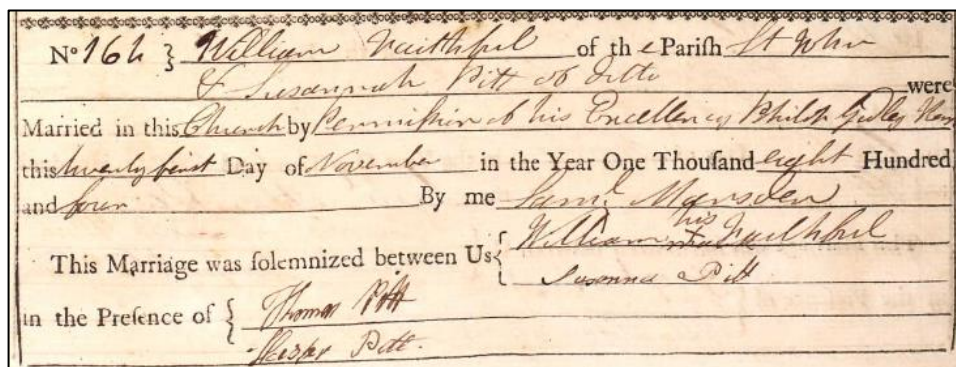 No 164 } William Faithful of the Parish St John
& Susannah Pitt of ditto were
Married in this Church by Permission of his Excellency Philip Gidley King
this twenty first Day of November in the Year One Thousand eight Hundred
and four By me Saml. Marsden
This Marriage was solemnized between Us { William his mark Faithful
Susanna Pitt
in the Presence of { Thomas Pitt
Hester Pitt.